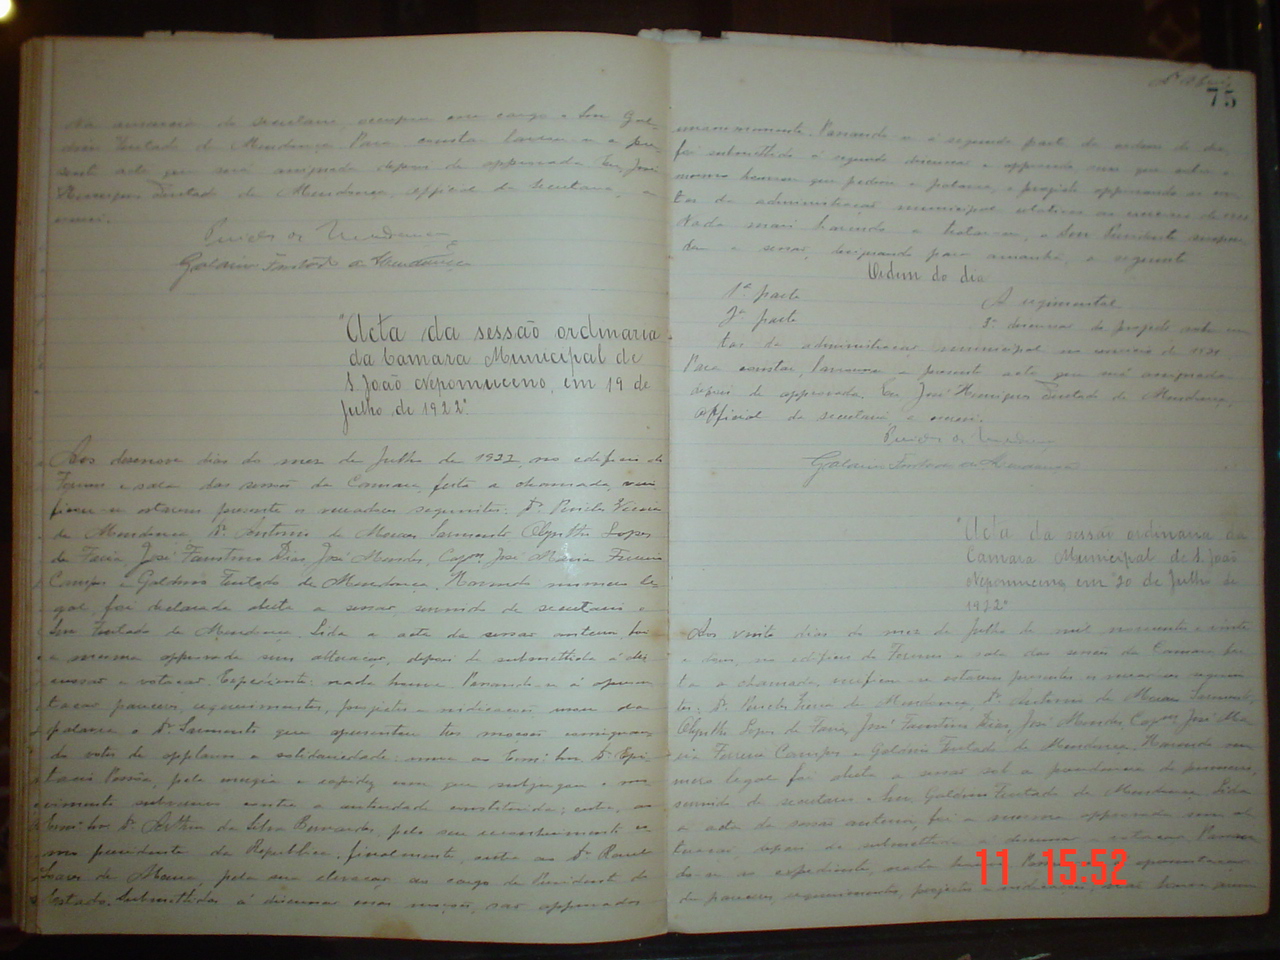 Na ausencia do secretario, occupou esse cargo o Snr Gal-
dino Furtado de Mendonça Para constar lavrou-se a pre-
sente acta que será assignada depois de approvada Eu, José
Henriques Furtado de Mendonça, official da Secretaria, a
escrevi.
Pericles de Mendonça
Galdino Furtado de Mendonça
"Acta da sessão ordinaria
da Camara Municipal de
S. João Nepomuceno, em 19 de
Julho de 1922"
Aos desenove dias do mez de Julho de 1922, no edificio do
Forum e sala das sessões da Camara, feita a chamada, veri
ficou-se estarem presentes os vereadores seguintes: Dr. Pericles Vieira
de Mendonça, Dr. Antonio de Moraes Sarmento Olyntho Lopes
de Faria José Faustino Dias, José Mendes, Capm José Maria Ferreira
Campos e Galdino Furtado de Mendonça, Havendo numero le-
gal, foi declarada aberta a sessão, servindo de secretario o
Snr Furtado de Mendonça. Lida a acta da sessão anterior foi
a mesma approvada sem alteração, depois de submettida á dis
cussão e votação Expediente: nada houve Passando-se á apresen
tação pareceres, requerimentos, projectos e indicações, usou da
palavra o Dr Sarmento que apresentou tres moções
de votos de applauso e solidariedade: uma ao Exmo: Snr. Dr. Epi-
tacio Pessôa, pela energia e rapidez com que subjugou o mo
vimento subversivo contra a autoridade constituida; outra, ao
Exmo: Snr Dr. Arthur da Silva Bernardes, pelo seu reconhecimento co
mo presidente da Republica, finalmente, outra ao Dr Raul
Soares de Moura, pela sua elevação ao cargo de Presidente do
Estado. Submettidas á discussão essas moções, são approvadas
75
unanimemente. Passando-se á segunda parte da ordem do dia,
foi submettido á segunda discussão e approvado sem que sobre o
mesmo houvesse que pedisse a palavra, o projecto approvando as con
tas da administração municipal relativas ao exercicio de 1921
Nada mais havendo a tratar-se, o Snr Presidente suspen
deu a sessão, designando para amanhã, a seguinte
Ordem do dia
1ª parte A regimental
2ª parte 3ª discussão do projecto sobre con
tas da administração municipal no exercicio de 1921
Para constar, lavrou-se a presente acta que será assignada
depois de approvada. Eu, José Henriques Furtado de Mendonça,
official da secretaria, a escrevi.
Pericles de Mendonça
Galdino Furtado de Mendonça
"Acta da sessão ordinaria da
Camara Municipal de S. João
Nepomuceno, em 20 de Julho de
1922"
Aos vinte dias do mez de Julho de mil novecentos e vinte
e dous, no edificio do Forum e sala das sessões da Camara, fei
ta a chamada, verificou-se estarem presentes os vereadores seguin
tes: Dr. Pericles Vieira de Mendonça, Dr. Antonio de Moraes Sarmento,
Olyntho Lopes de Faria, José Faustino Dias, José Mendes, Capm José Ma
ria Ferreira Campos e Galdino Furtado de Mendonça, Havendo nu
mero legal foi aberta a sessão sob a presidencia do primeiro,
servindo de secretario o Snr. Galdino Furtado de Mendonça. Lida
a acta da sessão anterior, foi a mesma approvada sem al
teração, depois de submettida á discussão e votação Passan
do-se ao expediente, nada houve Passando-se apresentação
de pareceres, requerimentos, projectos e indicações,
11 15:52